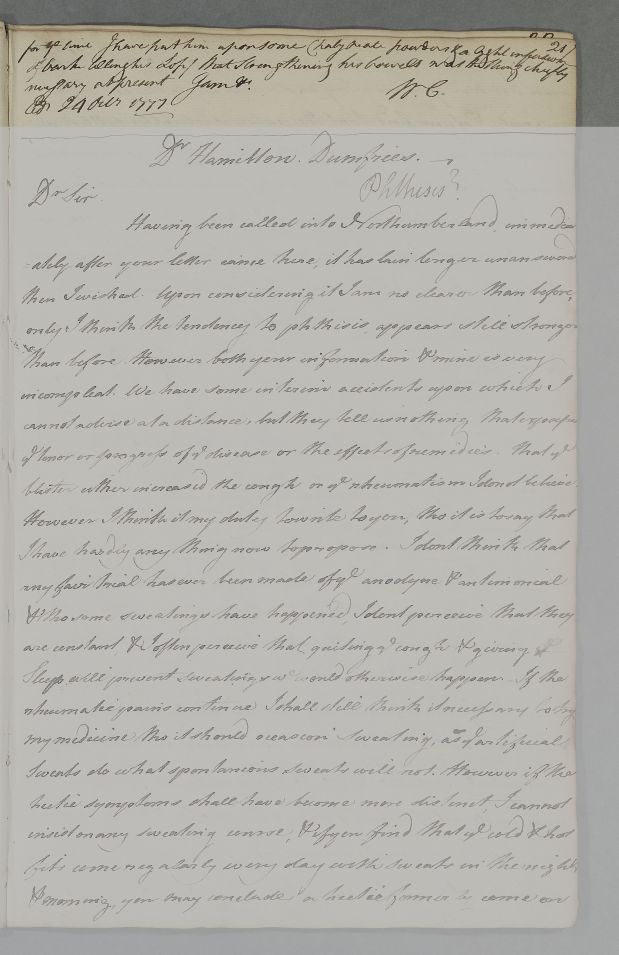 for ye time I have put him upon some Chalybeate powders & a light infusion 21
of bark telling his Lops that strengthening his bowels was the thing chiefly
necessary at present I am &c.
Edr 24 Octr 1777 W. C.
Dr Hamilton. Dumfries.
Phthisis?
Dr Sir
Having been called into Northumberland immedia
-ately after your letter came here, it has lain longer unanswered
than I wished. Upon considering it I am no clearer than before,
only I think the tendency to phthisis appears still stronger
than before. However both your information & mine is very
incompleat. We have some interim accidents upon which I
cannot advise at a distance, but they tell us nothing
ye tenor or progress of ye disease or the effects of remedies. that ye
blister either increased the cough or ye rheumatism I dont believe.
However I think it my duty to write to you, tho it is to say that
I have hardly any thing now to propose. I dont think that
any fair trial has ever been made of ye anodyne & antimonial
& tho some sweatings have happened, I dont perceive that they
are constant & I often perceive that quieting ye cough & giving
Sleep will prevent sweatings wc would otherwise happen. If the
rheumatic pains continue I shall still think it necessary to try
my medicine tho it should occasion sweating, as ye artificial
Sweats do what spontanious sweats will not. However if the
hectic symptoms shall have become more distinct, I cannot
insist on any sweating course, & if you find that ye cold & hot
fits come regularly every day with sweats in the night
& morning, you may conclude a hectic former to come on